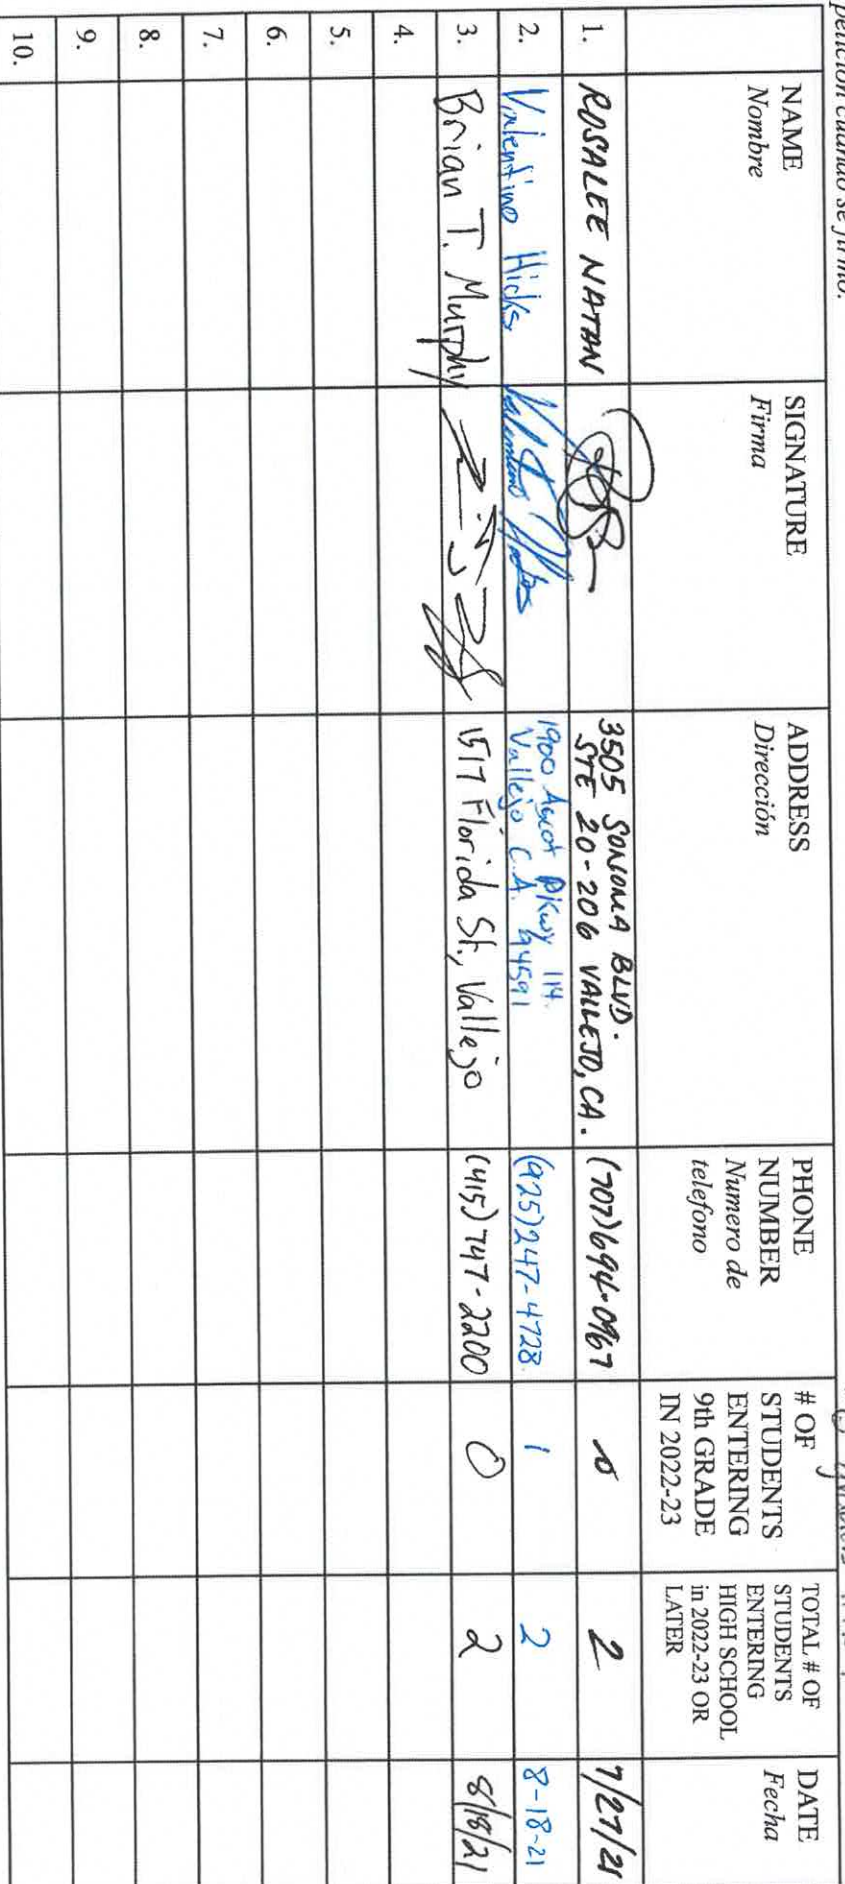 petición cuando se firmó.
NAME
Nombre
SIGNATURE
Firma
ADDRESS
Dirección
PHONE
NUMBER
Numero de
telefono
# OF
STUDENTS
ENTERING
9th GRADE
IN 2022-23
TOTAL # OF
STUDENTS
ENTERING
HIGH SCHOOL
in 2022-23 OR
LATER
DATE
Fecha
1. ROSALEE NATAN 3505 SONOMA BLVD. STE 20-206 VALLEJO, CA. (707)694-0967 0 2 7/27/21
2. Valentino Hicks Valentino Hicks 1900 Pkwy 114. Vallejo C.A. 94591 (925)247-4728 1 2 8-18-21
3. Brian T. Murphy 1517 Florida St., Vallejo (415)747-2200 0 2 8/18/21
4.
5.
6.
7.
8.
9.
10.